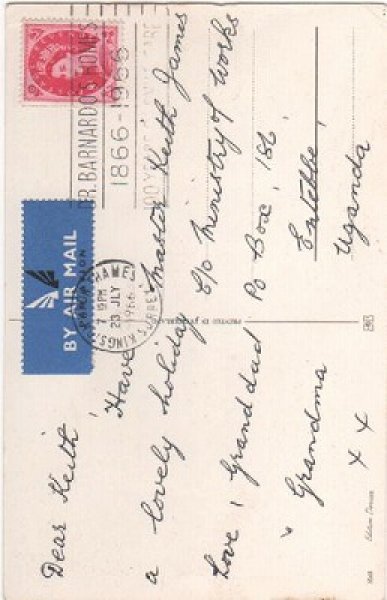 DR. BARNARDO'S HOMES
1866-1966
100 YEARS OF CHILD CARE
BY AIR MAIL
THAMES
7 PM
23 JLY
1966
KINGS
SURREY
Dear Keith
Have
a lovely holiday
Love, Granddad
& Grandma
x x
Master Keith James
C/o Ministry of Works
PO Box, 186
Entebbe,
Uganda
PRINTED IN